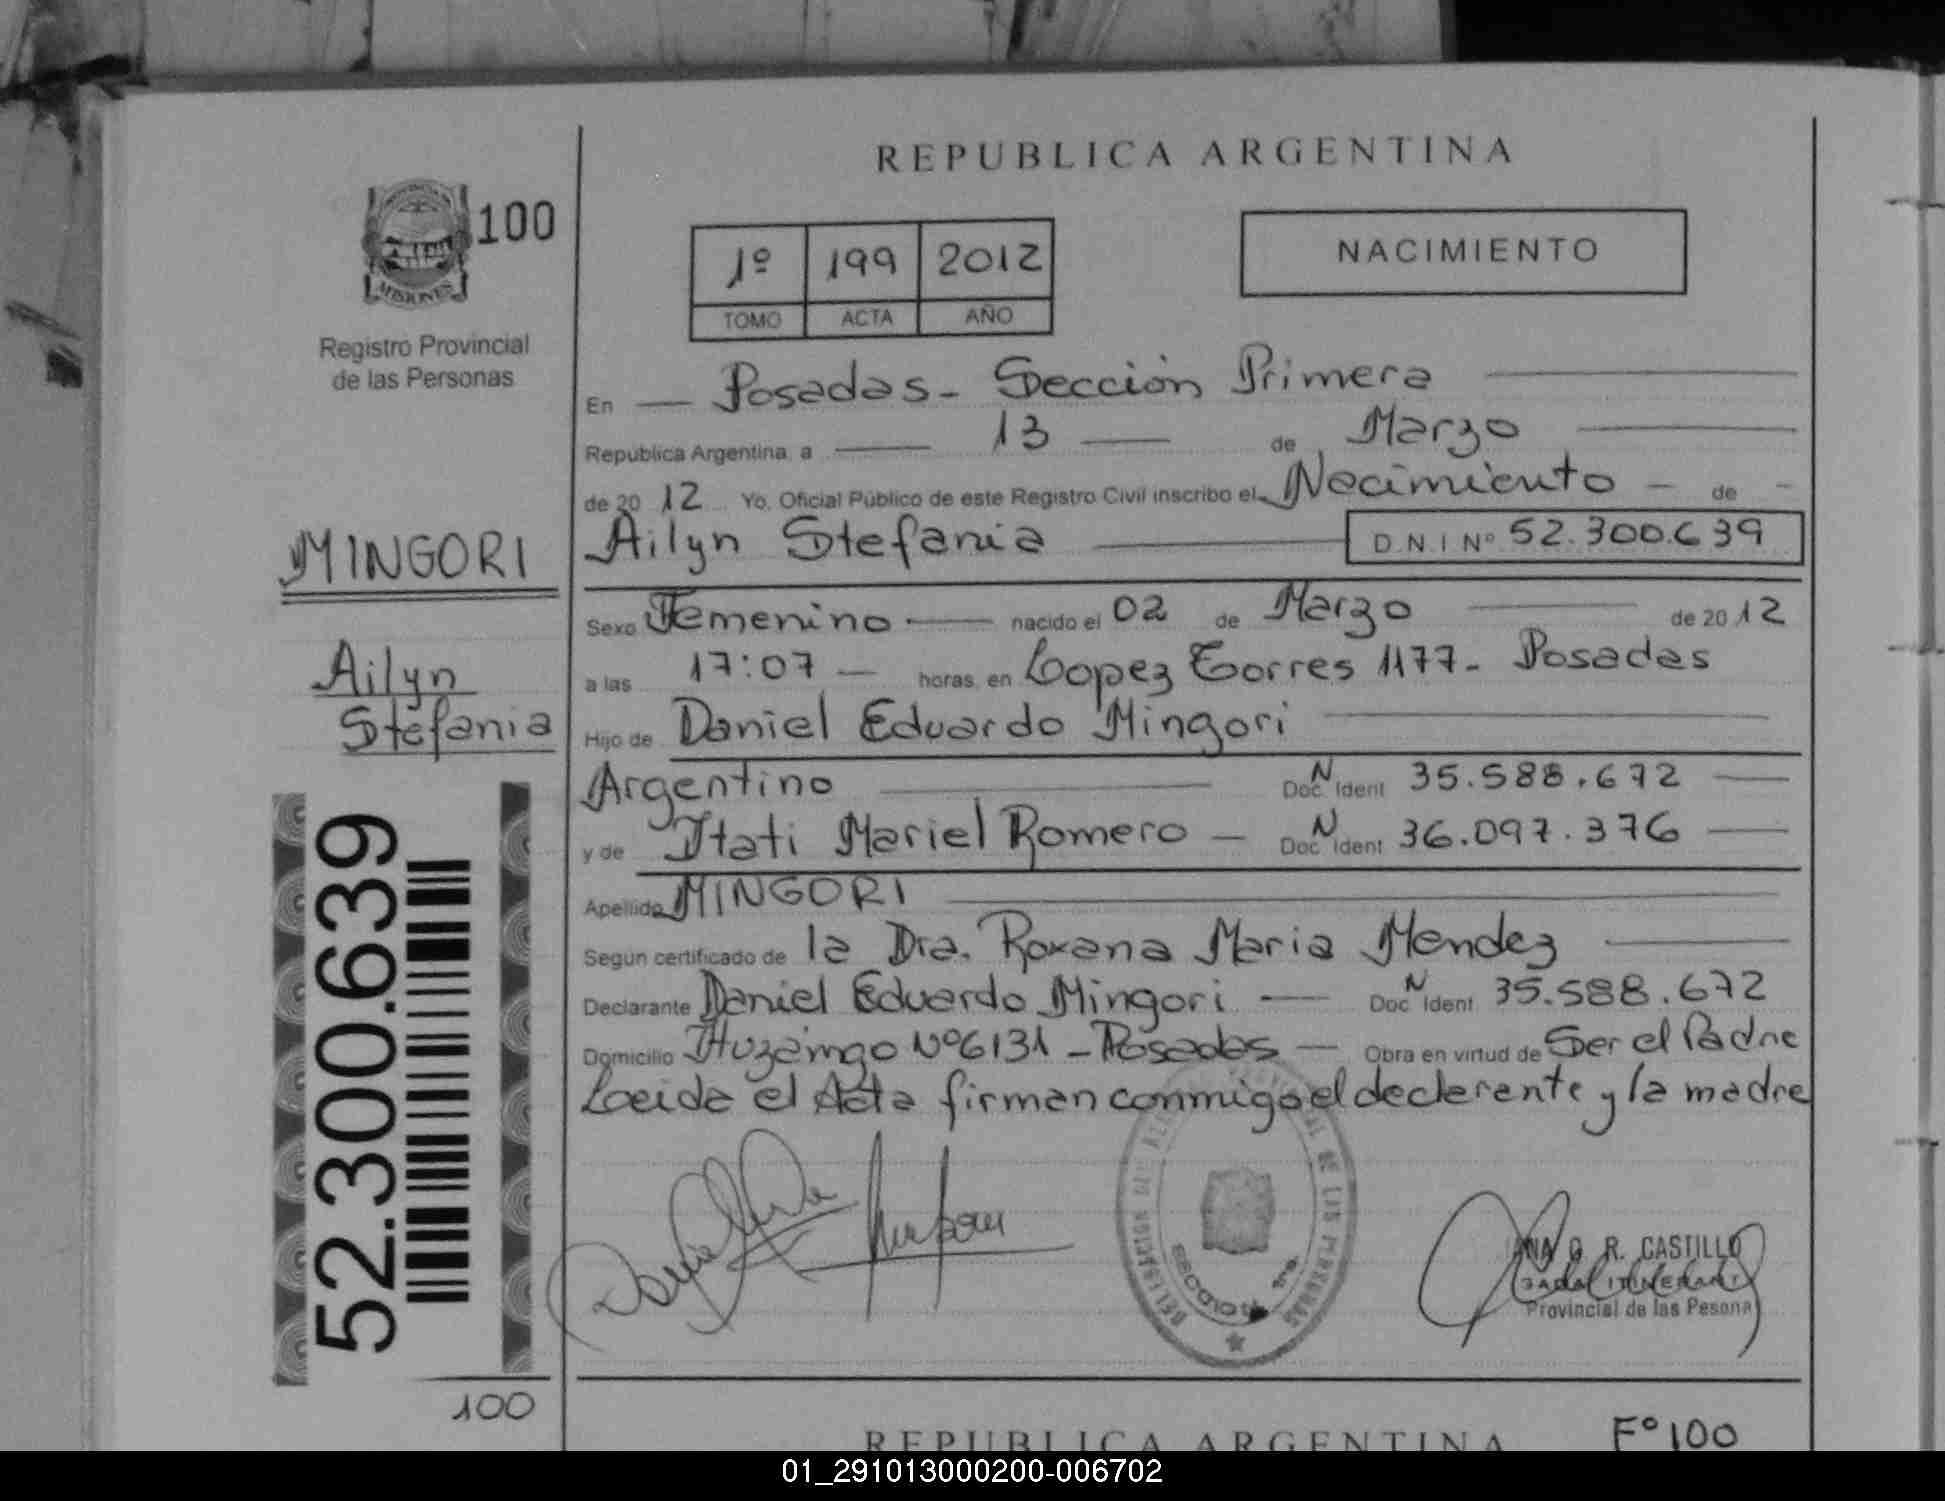 REPUBLICA ARGENTINA
100
MISIONES
Registro Provincial
de las Personas
1º 199 2012
TOMO ACTA AÑO
NACIMIENTO
En — Posadas - Sección Primera
República Argentina, a 13 de Marzo
de 20 12 Yo, Oficial Público de este Registro Civil inscribo el Nacimiento - de -
Ailyn Stefania D.N.I Nº 52.300.639
MINGORI
Ailyn
Stefania
Sexo Femenino — nacido el 02 de Marzo de 20 12
a las 17:07 — horas, en Lopez Torres 1177 - Posadas
Hijo de Daniel Eduardo Mingori
Argentino Doc. N Ident 35.588.672
y de Itati Mariel Romero — Doc. N Ident 36.097.376
Apellido MINGORI
Según certificado de la Dra. Roxana Maria Mendez
Declarante Daniel Eduardo Mingori — Doc N Ident 35.588.672
Domicilio Ituzaingo Nº6131 - Posadas — Obra en virtud de Ser el Padre
Leida el Acta firman conmigo el declarante y la madre
52.300.639
R. CASTILLO
Provincial de las Pesona
100
REPUBLICA ARGENTINA Fº100
01_291013000200-006702